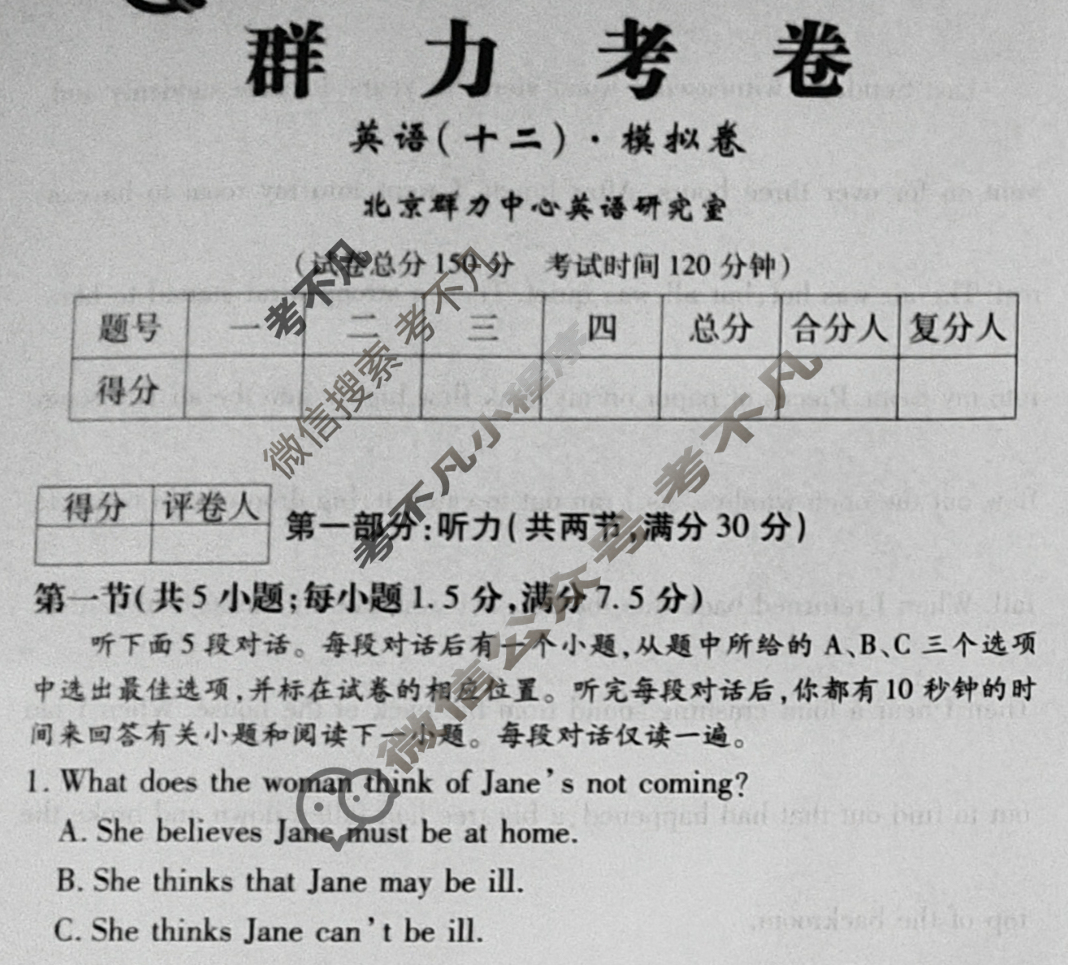 群力考卷
英语(十二)·模拟卷
北京群力中心英语研究室
(试卷总分150分 考试时间120分钟)
题号 一 二 三 四 总分 合分人 复分人
得分
得分 评卷人
第一部分:听力(共两节,满分30分)
第一节(共5小题;每小题1.5分,满分7.5分)
听下面5段对话。每段对话后有一个小题,从题中所给的A、B、C三个选项
中选出最佳选项,并标在试卷的相应位置。听完每段对话后,你都有10秒钟的时
间来回答有关小题和阅读下一小题。每段对话仅读一遍。
1. What does the woman think of Jane's not coming?
A. She believes Jane must be at home.
B. She thinks that Jane may be ill.
C. She thinks Jane can't be ill.
考不凡
微信搜索 考不凡
考不凡小程序
微信公众号 考不凡